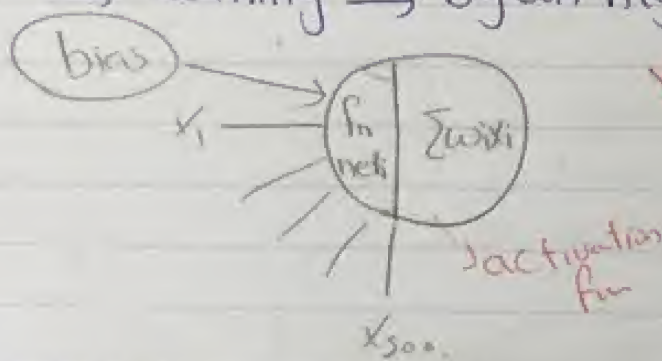 bias
x₁
fn
net
Σwixi
activation
fun
x₃₀₀